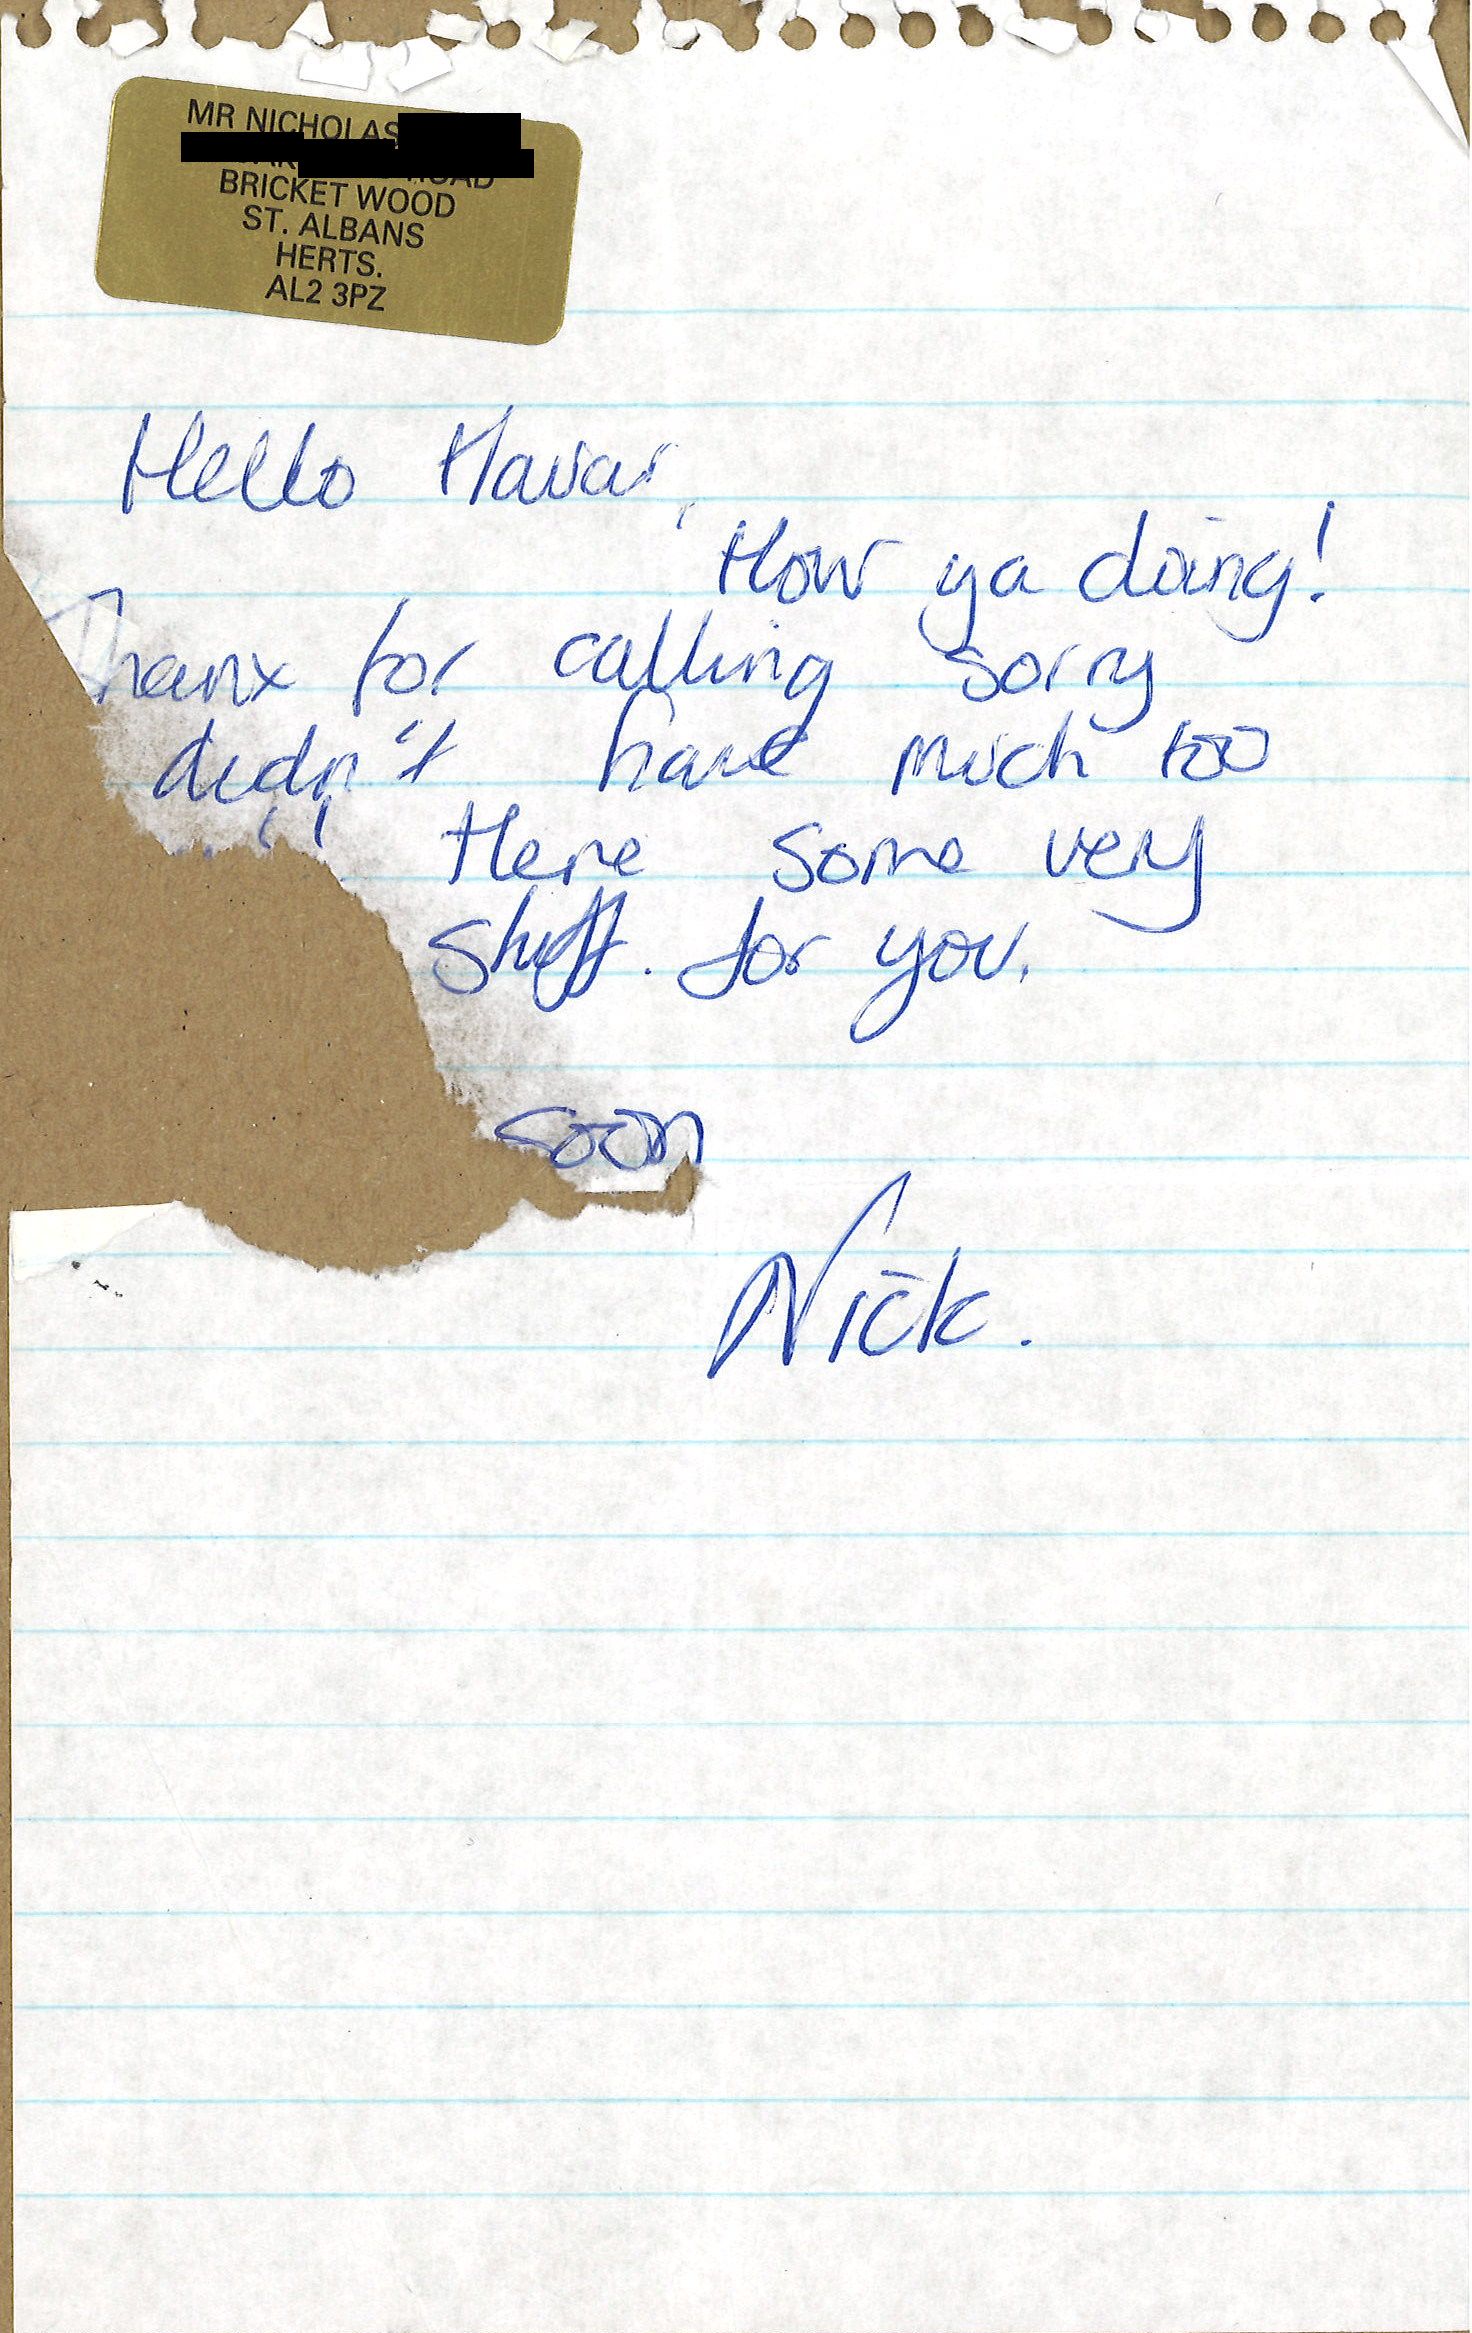 MR NICHOLAS
ROAD
BRICKET WOOD
ST. ALBANS
HERTS.
AL2 3PZ
Hello Havar,
How ya doing!
Thanx for calling sorry
didn't have much too
Here some very
stuff. for you.
soon
Nick.